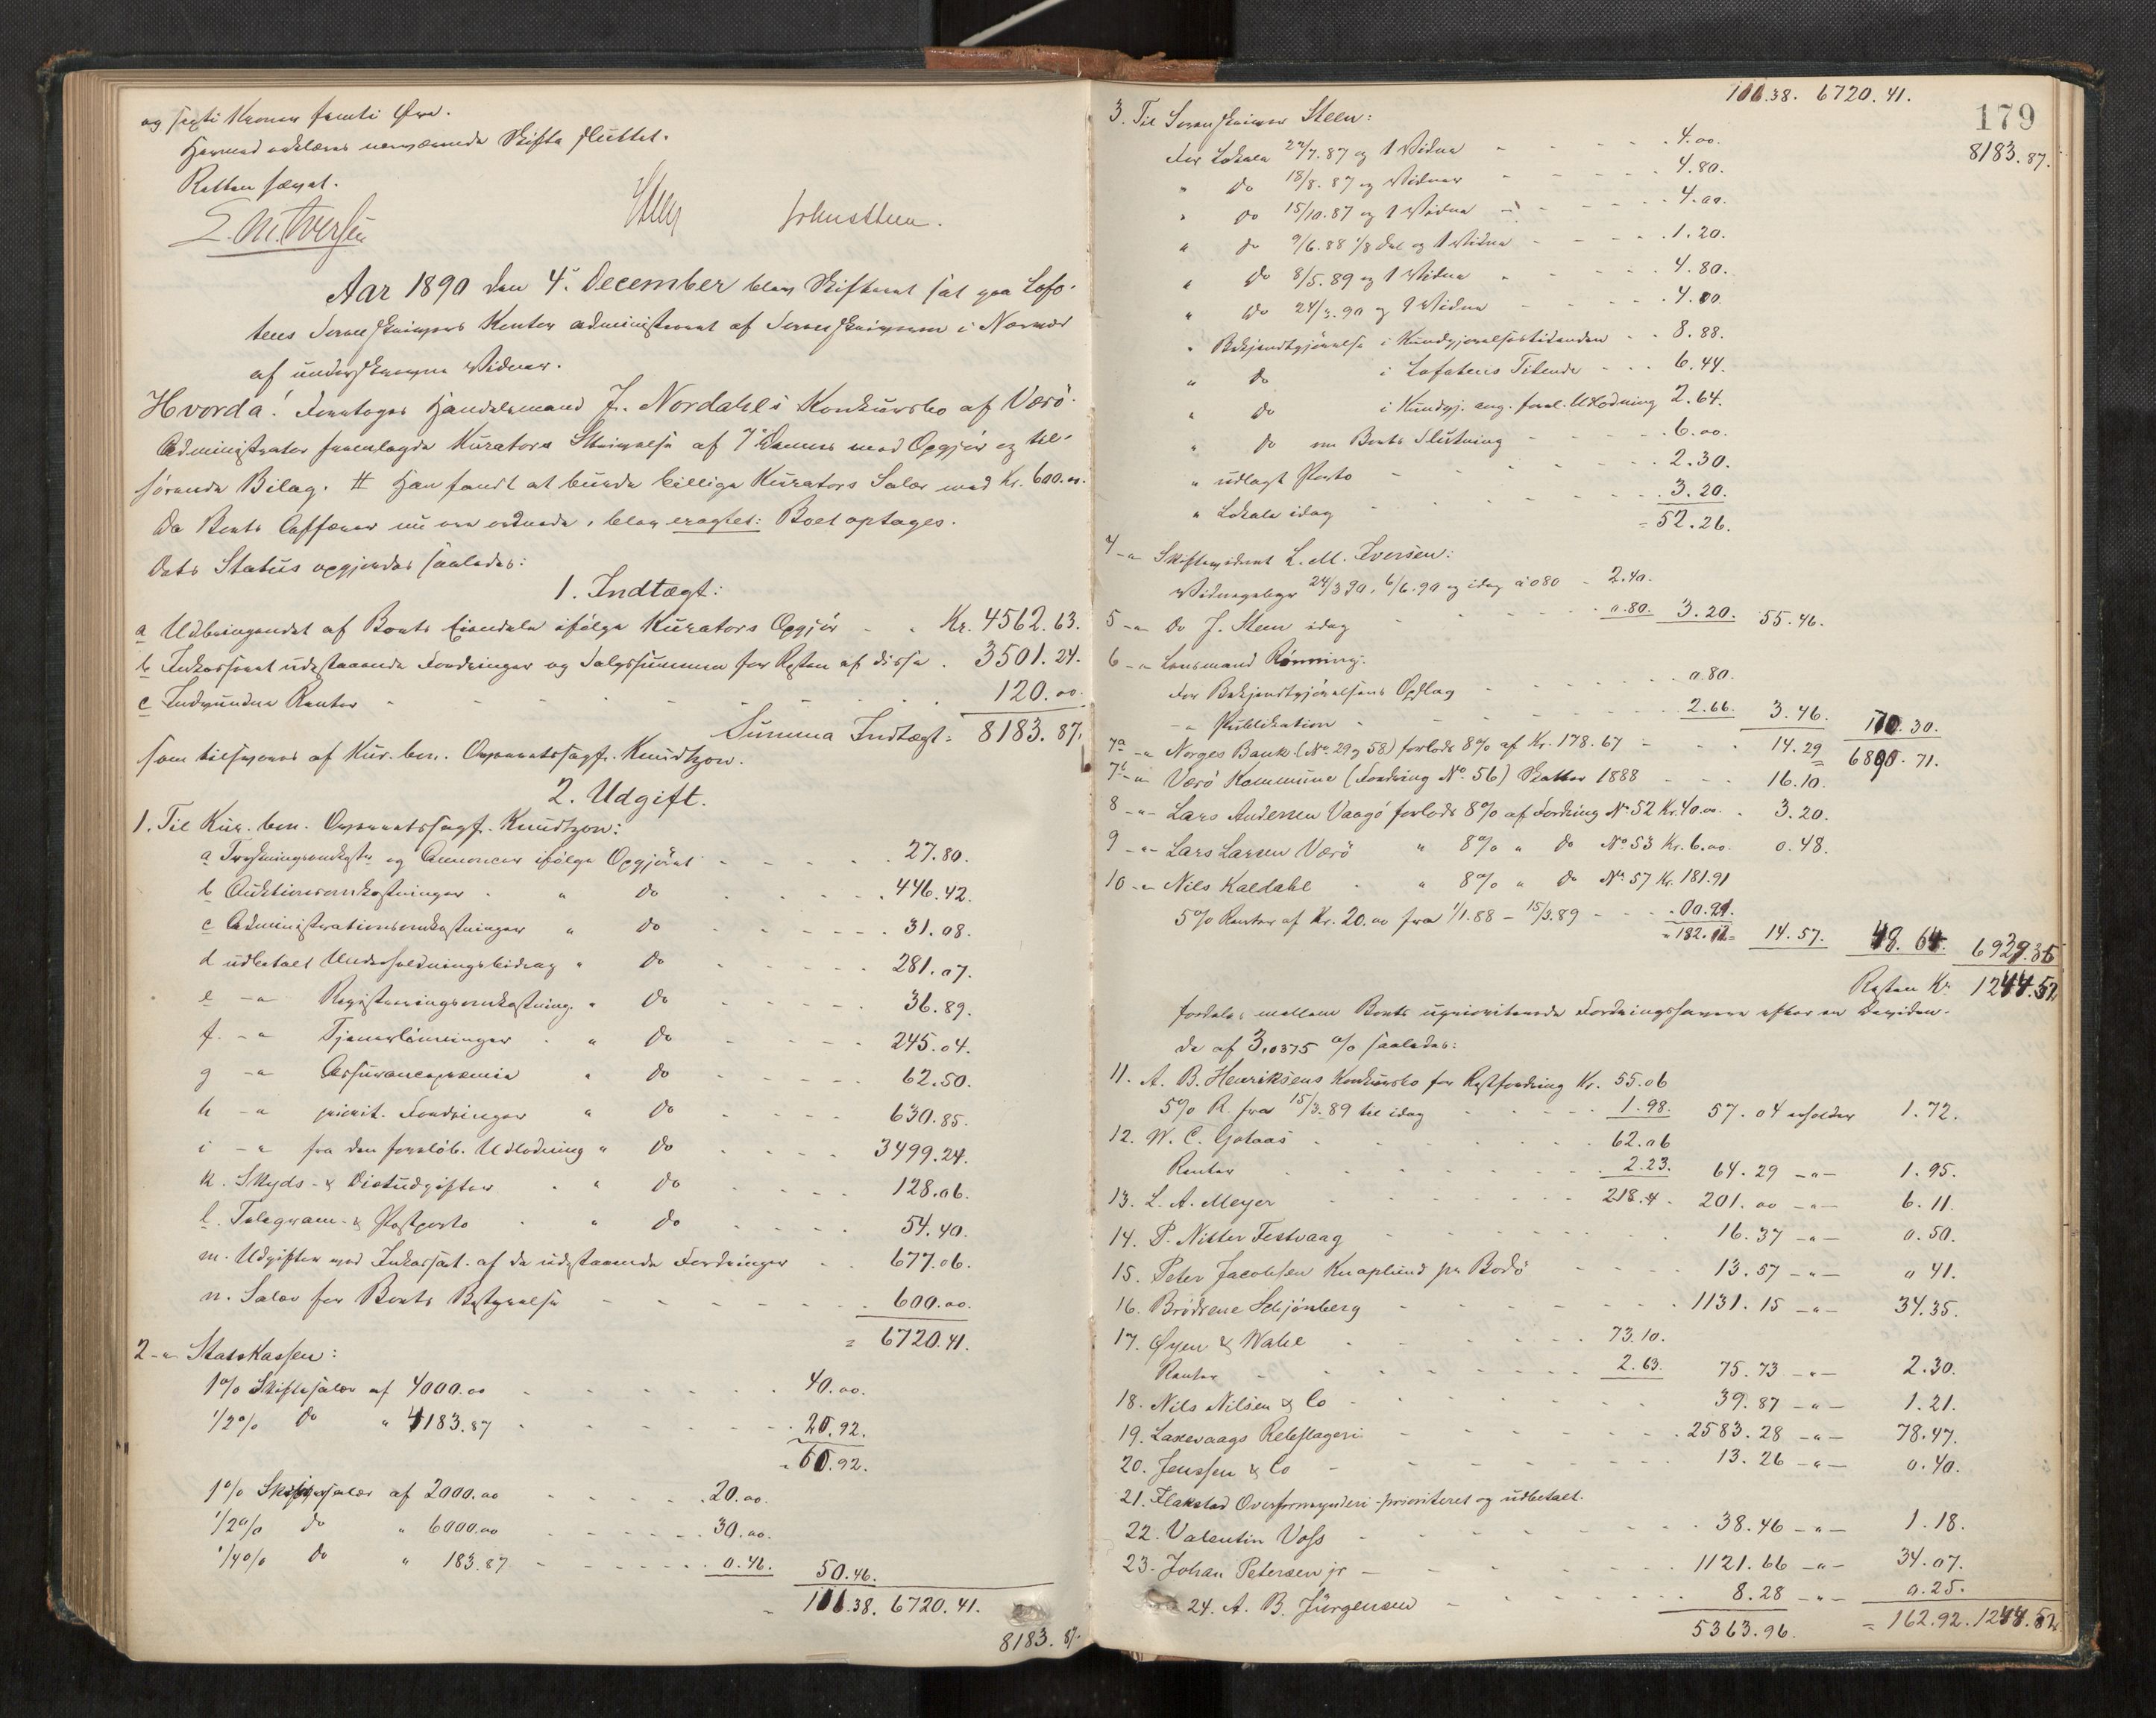 og sexti Kroner femti Øre.
Hermed erklæres nærværende Skifte sluttet.
Retten hævet.
L. M. Iversen Steen John Steen.
Aar 1890 den 4. December blev Skifteret sat paa Lofo-
tens Sorenskriveres Kontor administreret af Sorenskriveren i
af underskrevne Vidner.
Hvorda! Foretoges Handelsmand J. Nordahls Konkursbo af Værö.
Administrator fremlagde Kurators Skrivelse af 7 med Opgjör og til-
hörende Bilag. # Han fandt at burde billige Kurators Salær med Kr. 600.00.
Da Boets Affærer nu var ordnede, blev eragtet: Boet optages.
Dets Status opgjordes saaledes:
1. Indtægt:
a Udbringendet af Boets Eiendele ifölge Kurators Opgjör - - Kr. 4562.63.
b Inkasseret udestaaende Fordringer og Salgssummen for Resten af disse . 3501.24.
c Indvundne Renter - - - - - - 120.00.
Summa Indtægt: 8183.87.
som tilsvares af Kur. bon. Overretssagf. Knudtzon.
2. Udgift.
1. Til Kur. bon. Overretssagf. Knudtzon:
a Trykningsomkostn. og Annoncer ifölge Opgjöret - - - - 27.80.
b Auktionsomkostninger - " do - - - - 446.42.
c Administrationsomkostninger " do - - - - 31.08.
d udbetalt Underholdningsbidrag " do - - - - 281.07.
e -"- Registreringsomkostning. " do - - - - 36.89.
f. -"- Tjenerlönninger " do - - - - 245.04.
g -"- Assurancepræmie " do - - - - 62.50.
h -"- priorit. Fordringer " do - - - - 630.85.
i -"- fra den forelöb. Udlodning " do - - - - 3499.24.
k. Skyds- & Diætudgifter " do - - - - 128.06.
l. Telegram- & Postporto " do - - - - 54.40.
m. Udgifter ved Inkasset. af de udestaaende Fordringer - - 677.06.
n. Salær for Boets Bestyrelse - - - - - - 600.00.
= 6720.41.
2 -"- Statskassen:
1% Skiftesalær af 4000.00 - - - - - 40.00.
1/2% do " 4183.87 - - - - - 20.92.
= 60.92.
1% af 2000.00 - - - - 20.00.
1/2% do " 6000.00 - - - - 30.00.
1/4% do " 183.87 - - - - 0.46. 50.46.
= 111.38. 6720.41.
8183.87.
111.38. 6720.41.
179
8183.87.
3. Til Sorenskriver Steen:
For Lokale 22/7.87 og 1 Vidne - - - - 4.00.
" do 18/8.87 og Vidner - - - - 4.80.
" do 15/10.87 og 1 Vidne - - - - 4.00.
" do 9/6.88 1/8 Del og 1 Vidne - - - - 1.20.
" do 8/5.89 og 1 Vidne - - - - 4.80.
" do 24/3.90 og 1 Vidne - - - - 4.00.
" Bekjendtgjörelse i Kundgjörelsestidenden - - 8.88.
" do i Lofotens Tidende - - - 6.44.
" do i Kundgj. ang. forel. Udlodning 2.64.
" do om Boets Slutning - - - - 6.00.
" udlagt Porto - - - - 2.30.
" Lokale idag - - - - 3.20.
= 52.26.
4 -"- Skiftevidnet L. M. Iversen:
Vidnegebyr 24/3 90, 6/6.90 og idag à 0.80 - 2.40.
5 -"- Do J. Steen idag - - - - 0.80. 3.20. 55.46.
6 -"- Lensmand Rönning:
For Bekjendtgjörelsens Opslag - - - - 0.80.
-"- Publikation - - - - 2.66. 3.46. 170.30.
7a -"- Norges Bank (No. 29 og 58) forlods 8% af Kr. 178.67 - - - 14.29 = 6890.71.
7b -"- Værö Kommune (Fordring No. 56) Skatter 1888 - - - 16.10.
8 -"- Lars Andersen Vaagö forlods 8% af Fordring No. 52 Kr. 40.00. . 3.20.
9 -"- Lars Larsen Værö " 8% " do No 53 Kr. 6.00. 0.48.
10 -"- Nils Kaldahl - " 8% " do No. 57 Kr. 181.91
5% Renter af Kr. 20.00 fra 1/1.88 - 15/3.89 - - - 00.21.
= 182.12 = 14.57. 48.64. 6939.35
Resten Kr. 1244.52
fordeles mellem Boets uprioriterede Fordringshavere efter en Dividen-
de af 3,0375 % saaledes:
11. A. B. Henriksens Konkursbo for Restfordring Kr. 55.06
5% R. fra 15/3.89 til idag - - - - 1.98. 57.04 erholder 1.72.
12. W. C. Gotaas - - - - 62.06
Renter - - - - 2.23. 64.29 -"- 1.95.
13. L. A. Meyer - - - - 218.4. 201.00 -"- 6.11.
14. P. Nitter Festvaag - - - - 16.37 -"- 0.50.
15. Peter Jacobsen Knaplund pr Bodö - - - - 13.57 -"- 0 41.
16. Brödrene Schjönberg - - - - 1131.15 -"- 34.35.
17. Øyen & Wahl - - - - 73.10.
Renter - - - - 2.63. 75.73 -"- 2.30.
18. Nils Nilsen & Co - - - - 39.87 -"- 1.21.
19. Laxevaags Rebslageri - - - - 2583.28 -"- 78.47.
20. Jenssen & Co - - - - 13.26 -"- 0.40.
21. Flakstad Overformynderi - prioriteret og udbetalt.
22. Valentin Voss - - - - 38.46 -"- 1.18.
23. Johan Petersen jr - - - - 1121.66 -"- 34.07.
24. A. B. Jürgensen - - - - 8.28 -"- 0.25.
5363.96. = 162.92. 1244.52